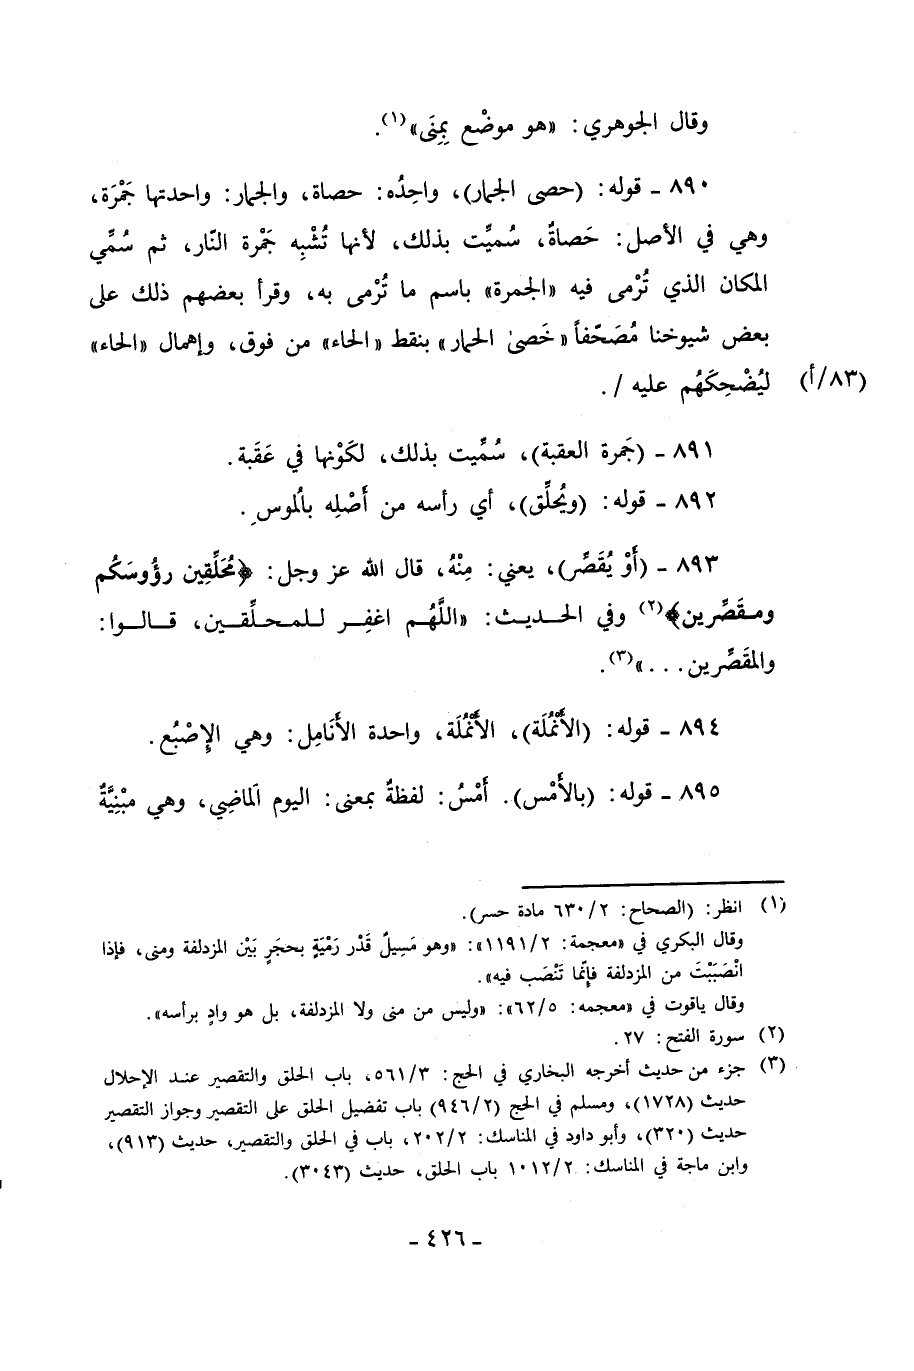 وقال الجوهري: «هو موضْع بِمِنَى»(١).
٨٩٠ ـ قوله: (حصى الجمار)، واحِدُه: حصاة، والجمار: واحدتها جَمْرَة،
وهي في الأصل: حَصاةٌ، سُميَّت بذلك، لأنها تُشْبِه جَمْرة النّار، ثم سُمِّي
المكان الذي تُرْمى فيه «الجمرة» باسم ما تُرْمى به، وقرأ بعضهم ذلك على
بعض شيوخنا مُصَحّفاً «خَصىٰ الحمار» بنقط «الخاء» من فوق، وإهمال «الحاء»
ليُضْحِكَهُم عليه /. (٨٣/أ)
٨٩١ ـ (جَمرة العقبة)، سُمِّيت بذلك، لكَوْنها في عَقَبة.
٨٩٢ ـ قوله: (ويُحلِّق)، أي رأسه من أَصْلِه بالُموسِ.
٨٩٣ ـ (أَوْ يُقَصِّر)، يعني: مِنْهُ، قال الله عز وجل: ﴿مُحَلِّقِين رؤُوسَكُم
ومقَصِّرين﴾(٢) وفي الحديث: «اللَّهُم اغفِر للمحلِّقين، قالوا:
والمقَصِّرين...»(٣).
٨٩٤ ـ قوله: (الأَنْمُلَة)، الأَنْمُلَة، واحدة الأَنَامِل: وهي الإِصْبُع.
٨٩٥ ـ قوله: (بالأَمْس). أَمْسُ: لفظةٌ بمعنى: اليوم اَلماضِي، وهي مبْنِيَّةٌ
(١) انظر: (الصحاح: ٦٣٠/٢ مادة حسر).
وقال البكري في «معجمة: ١١٩١/٢»: «وهو مَسِيلٌ قَدْر رَمْيَةٍ بحجَرٍ بَيْن المزدلفة ومنى، فإذا
انْصَبَبْتَ من المزدلفة فإنّما تَنْصَب فيه».
وقال ياقوت في «معجمه: ٦٢/٥»: «وليس من منى ولا المزدلفة، بل هو وادٍ برأسه».
(٢) سورة الفتح: ٢٧.
(٣) جزء من حديث أخرجه البخاري في الحج: ٥٦١/٣، باب الحلق والتقصير عند الإحلال
حديث (١٧٢٨)، ومسلم في الحج (٩٤٦/٢) باب تفضيل الحلق على التقصير وجواز التقصير
حديث (٣٢٠)، وأبو داود في المناسك: ٢٠٢/٢، باب في الحلق والتقصير، حديث (٩١٣)،
وابن ماجة في المناسك: ١٠١٢/٢ باب الحلق، حديث (٣٠٤٣).
ـ ٤٢٦ ـ